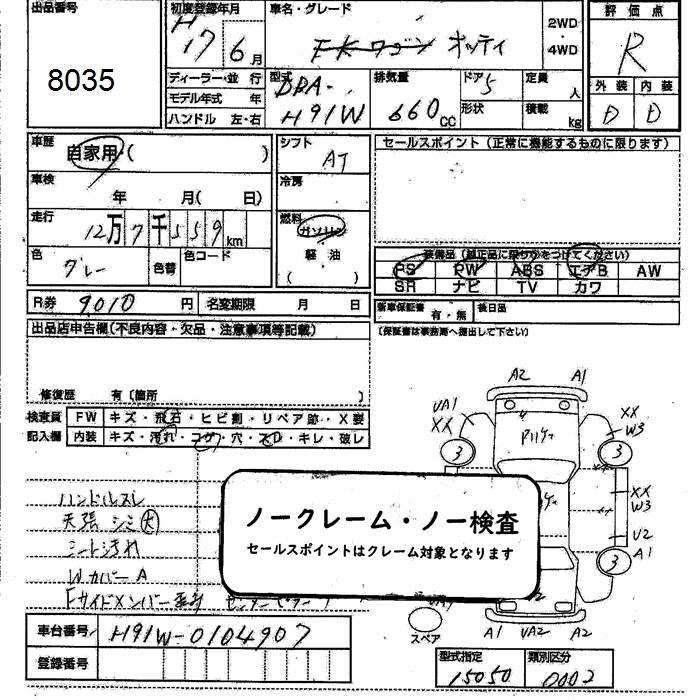 出品番号
8035
初度登録年月
H17 6月
車名・グレード
EKワゴン オッティ
2WD
・
4WD
評価点
R
ディーラー・並 行
モデル年式 年
ハンドル 左・右
型式
DBA-
H91W
排気量
660cc
ドア 5
形状
定員 人
積載 kg
外装 内装
D D
車歴
自家用・( )
車検
年 月( 日)
走行
12万7千559km
色
グレー
色替
色コード
シフト
AT
冷房
燃料
ガソリン
軽油
( )
セールスポイント(正常に機能するものに限ります)
装備品(純正品に限り○をつけてください)
PS PW ABS エアB AW
SR ナビ TV カワ
新車保証書 有・無 後日品
(保証書は事務局へ提出して下さい)
R券 9010 円 名変期限 月 日
出品店申告欄(不良内容・欠品・注意事項等記載)
修復歴 有(箇所 )
検査員
記入欄
FW キズ・飛石・ヒビ割・リペア跡・X要
内装 キズ・汚れ・コゲ・穴・スレ・キレ・破レ
ハンドルスレ
天張シミ大
シート汚れ
Wカバー A
Fサイドメンバー
ノークレーム・ノー検査
セールスポイントはクレーム対象となります
A2 A1
UA1
XX
XX
W3
3 3
XX
W3
U2
A1
3
スペア
A1 UA2 A2
車台番号 H91W-0104907
登録番号
型式指定 類別区分
15050 0002